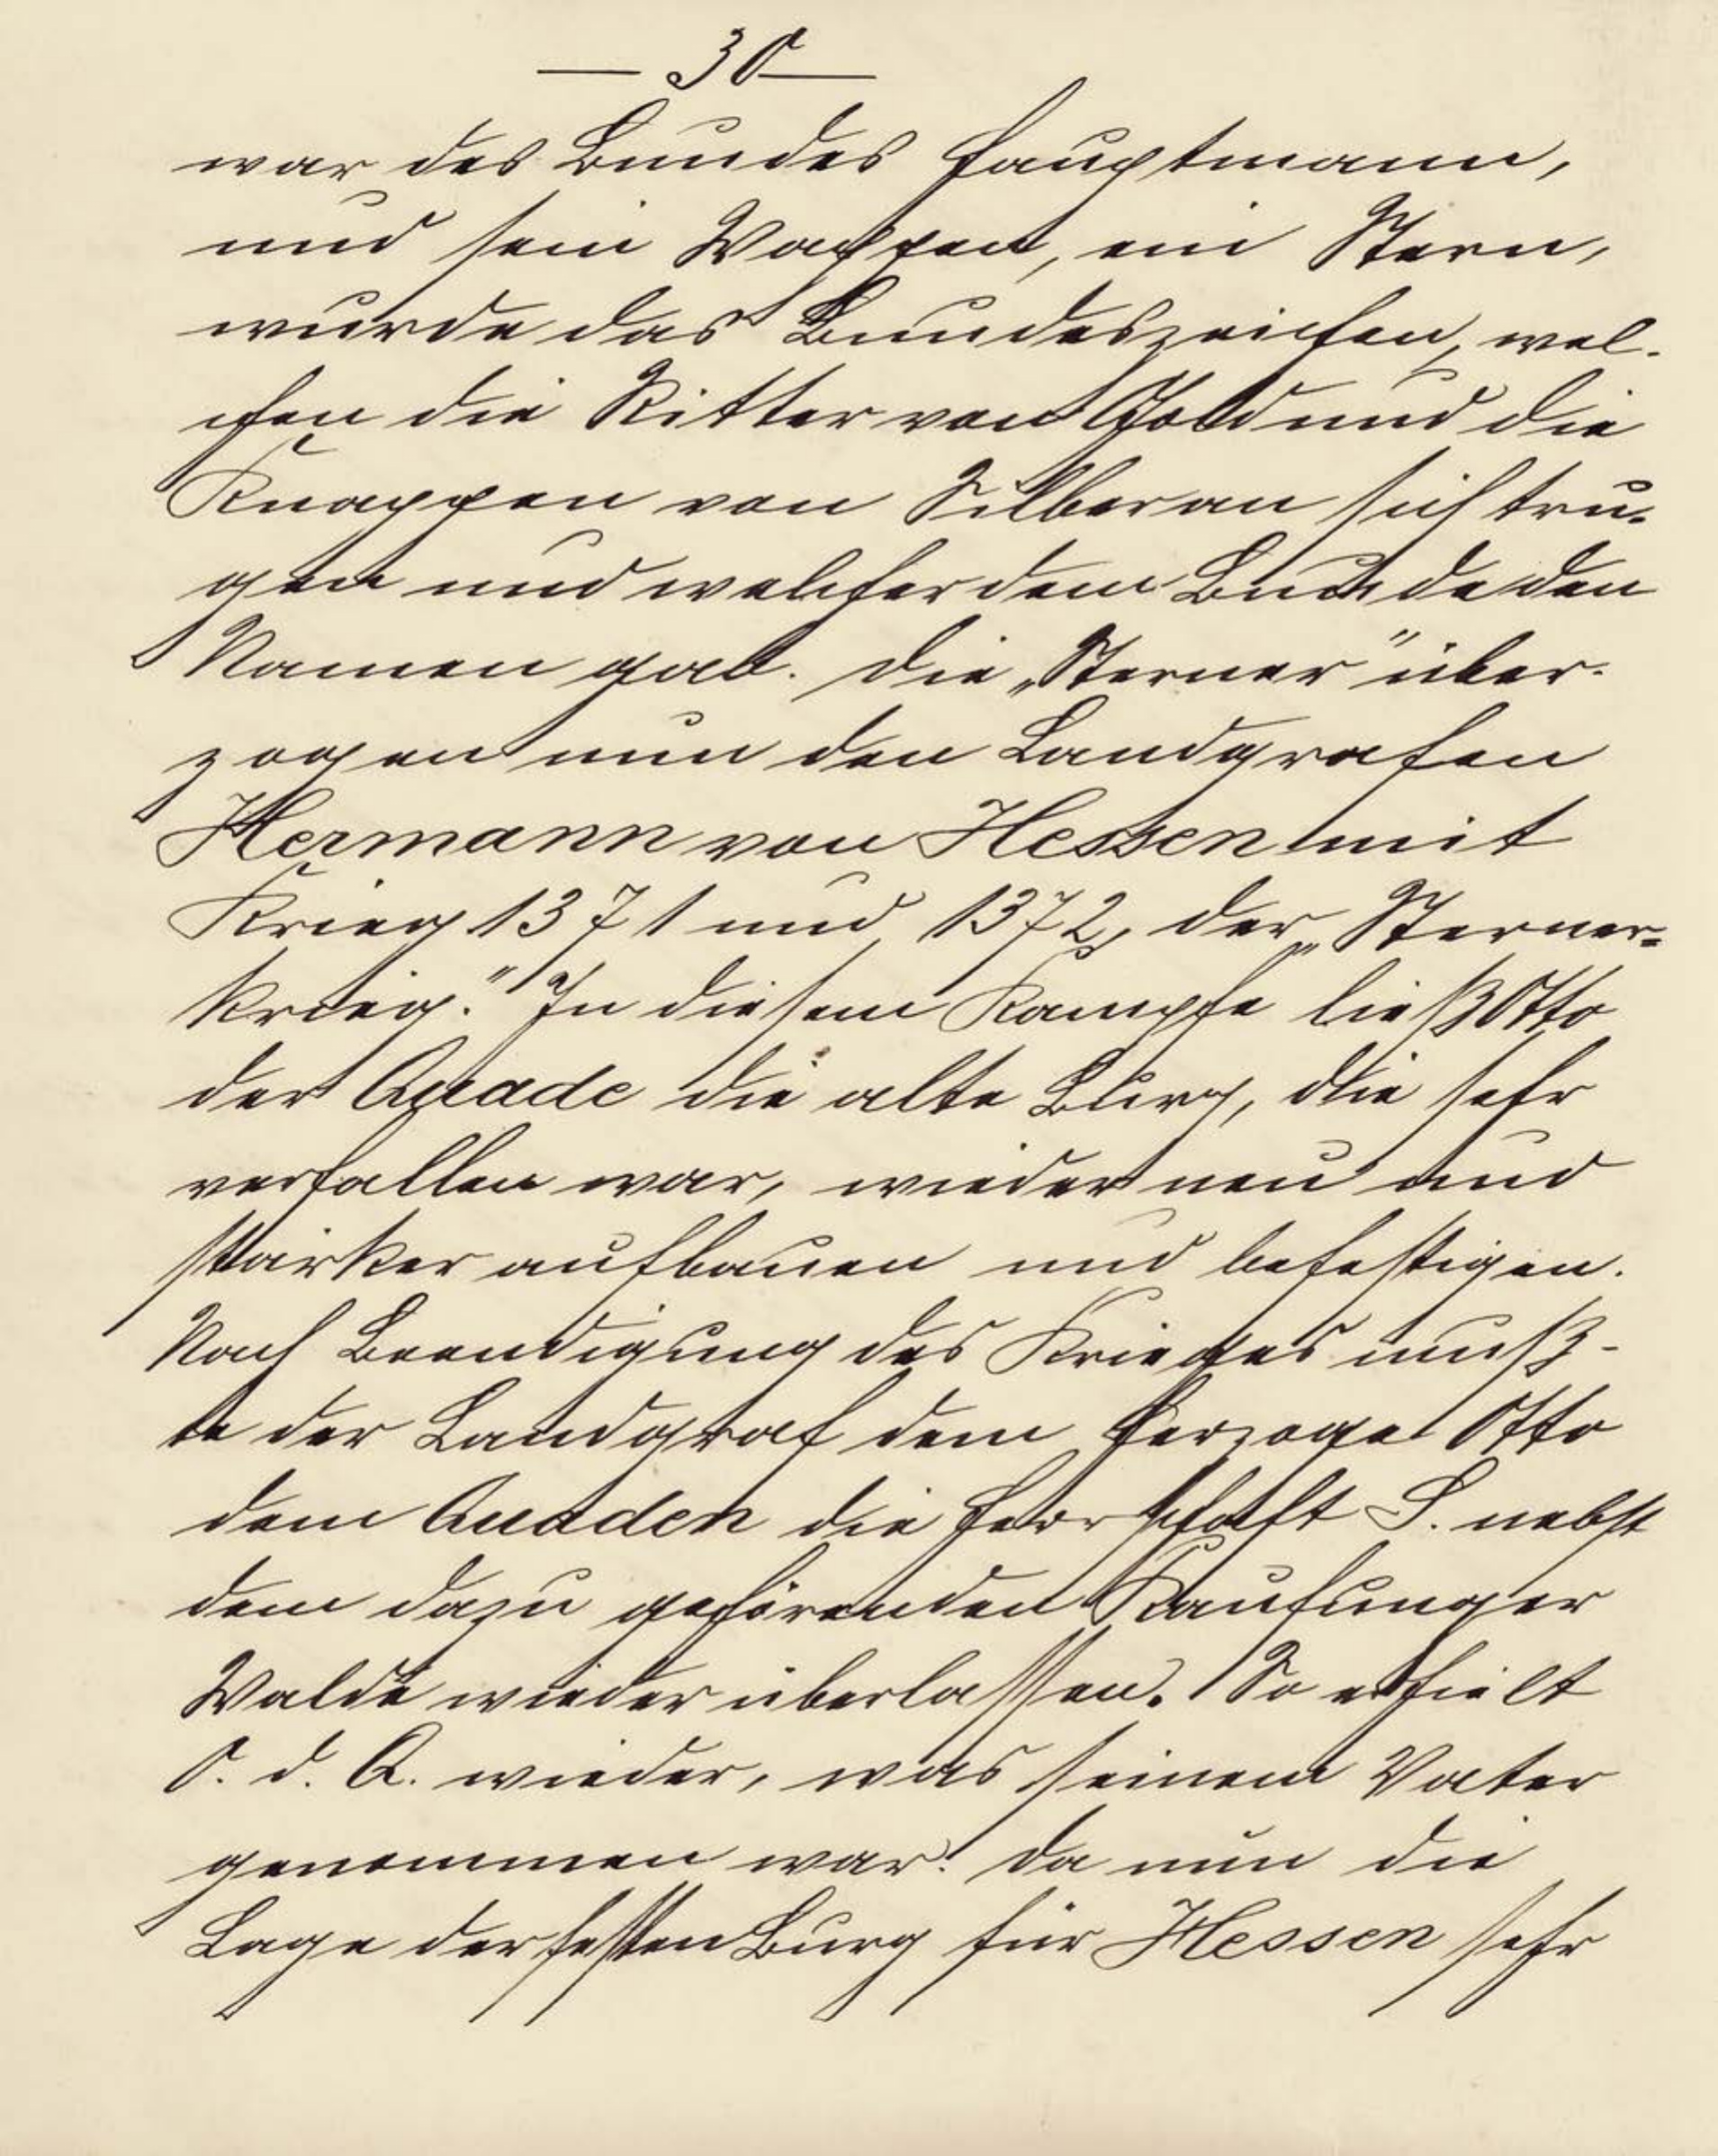 — 30 —
war des Bundes Hauptmann,
und sein Wappen, ein Stern,
wurde das Bundeszeichen, wel-
chen die Ritter von Gold und die
Knappen von Silber an sich tru-
gen und welcher dem Bunde den
Namen gab. Die „Sterner" über-
zogen nun den Landgrafen
Hermann von Hessen mit
Krieg 1371 und 1372, der „Sterner-
krieg." In diesem Kampfe ließ Otto
der Quade die alte Burg, die sehr
verfallen war, wieder neu und
stärker aufbauen und befestigen.
Nach Beendigung des Krieges muß-
te der Landgraf dem Herzoge Otto
dem Quaden die Herrschaft S. nebst
dem dazu gehörenden Kaufunger
Walde wieder überlassen. So erhielt
O. d. Q. wieder, was seinem Vater
genommen war. Da nun die
Lage der festen Burg für Hessen sehr